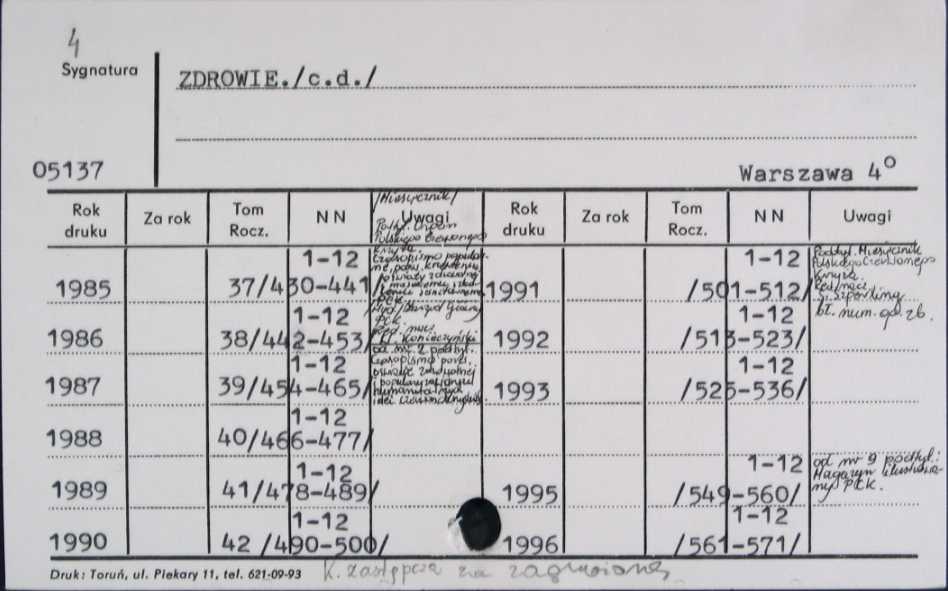 4
Sygnatura
ZDROWIE./c.d./
05137
Warszawa 4°
/Miesięcznik/
Rok druku Za rok Tom Rocz. NN Uwagi Rok druku Za rok Tom Rocz. NN Uwagi
1985 37/430-441/ 1-12
1986 38/442-453/ 1-12
1987 39/454-465/ 1-12
1988 40/466-477/ 1-12
1989 41/478-489/ 1-12
1990 42 /490-500/ 1-12
Polskiego Czerwonego
Krzyża.
PCK
Wyd. Zarząd Główny
PCK.
od nr 2 podtyt.
Czasopismo pośw.
1991 /501-512/ 1-12
1992 /513-523/ 1-12
1993 /525-536/ 1-12
1995 /549-560/ 1-12
1996 /561-571/ 1-12
Podtyt. Miesięcznik
Polskiego Czerwonego
Krzyża.
bł. num. op. zb.
od nr 9 podtyt.:
Magazyn Ilustrowa-
ny PCK.
Druk: Toruń, ul. Piekary 11, tel. 621-09-93
K. zastępcza za zagubioną